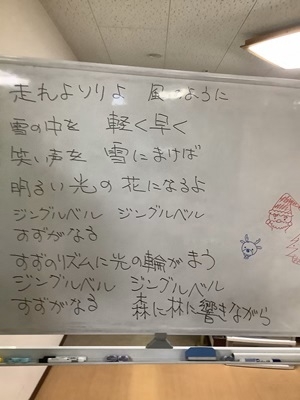 走れよソリよ 風のように
雪の中を 軽く早く
笑い声を 雪にまけば
明るい光の 花になるよ
ジングルベル ジングルベル
すずがなる
すずのリズムに光の輪がまう
ジングルベル ジングルベル
すずがなる 森に林に響きながら